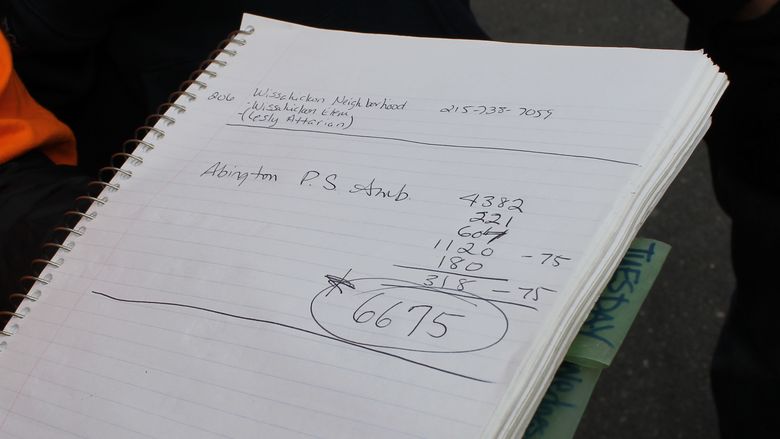 206 Wissahickon Neighborhood 215-738-7059
- Wissahickon Elem
- (Lesly Attarian)
Abington P.S Amb. 4382
221
604
1120 -75
180
318 -75
* 6675
TUESDAY